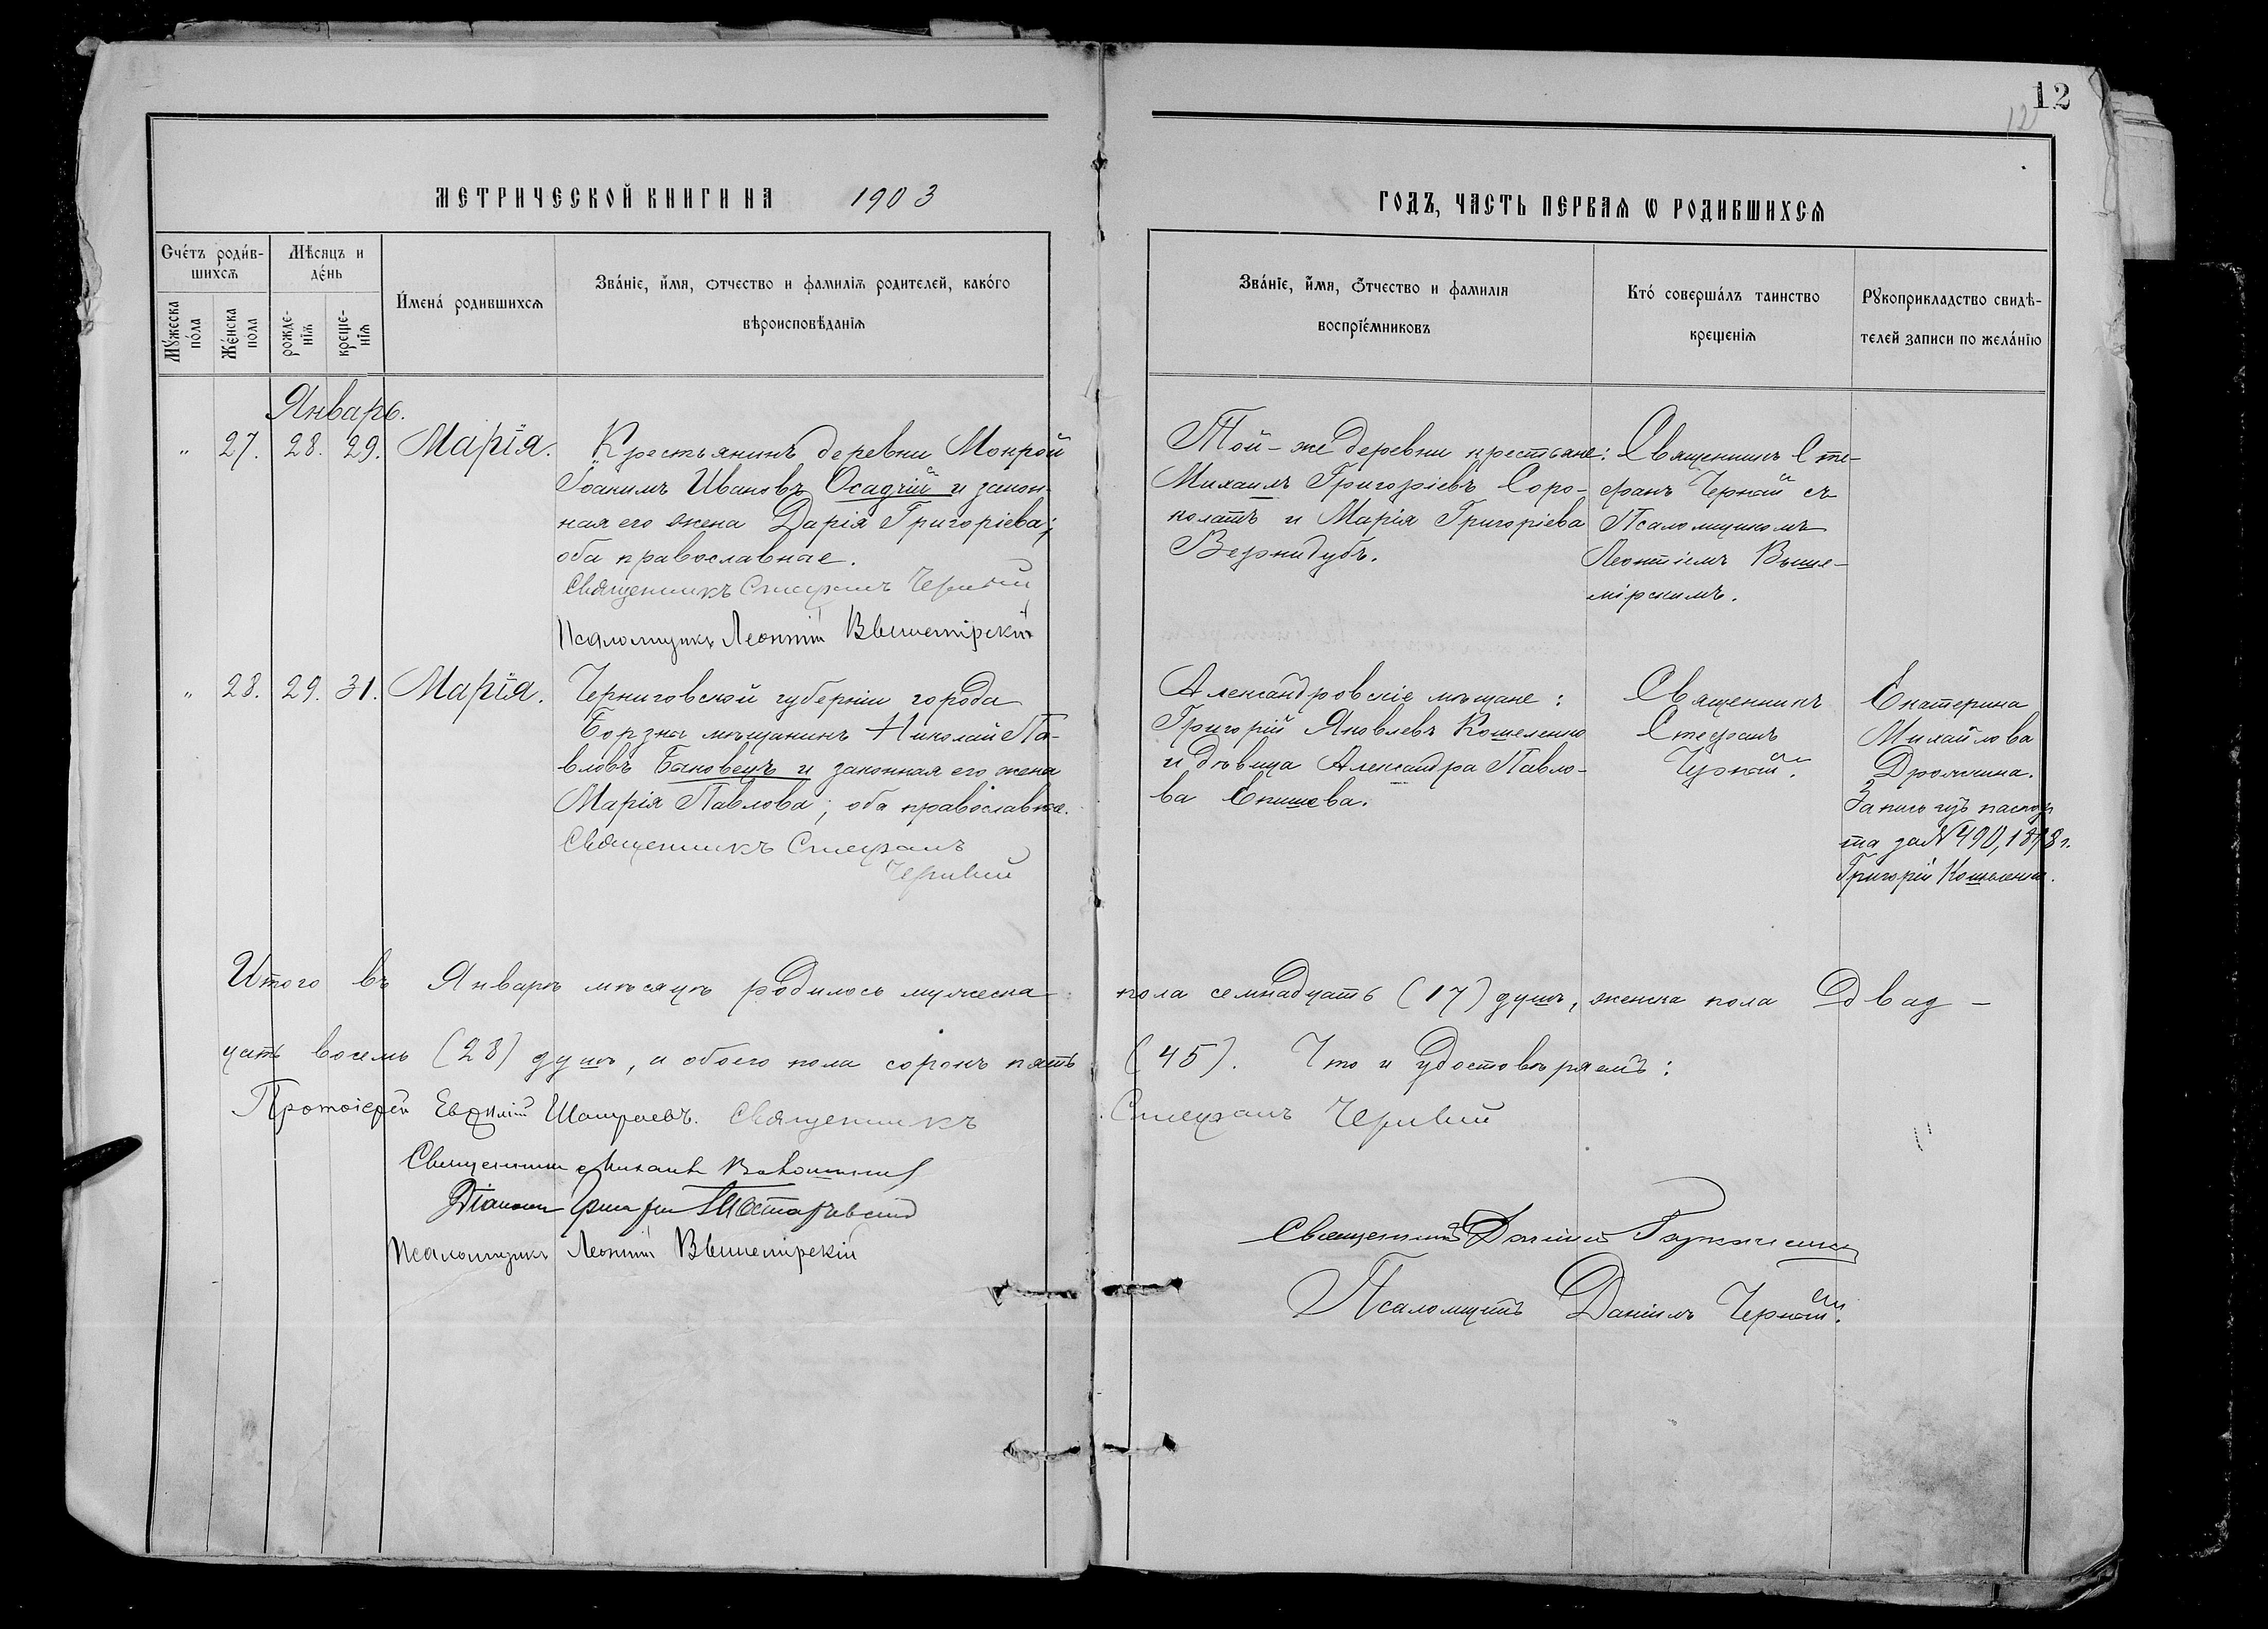 12
12
МЕТРИЧЕСКОЙ КНИГИ НА 1903
ГОДЪ, ЧАСТЬ ПЕРВАѦ Ѡ РОДИВШИХСѦ
Сче́тъ роди́в-
шихсѧ
Мѣсяцъ и
де́нь
Му́жеска
по́ла
Же́нска
пола
рожде-
нїѧ
креще-
нїѧ
И҆мена́ родившихсѧ
Зва́нїе, и҆́мѧ, ѻтчество и фамилїѧ родителей, како́го
вѣроисповѣ́данїѧ
Зва́нїе, и҆́мѧ, ѻ҆́тчество и фамилїѧ
воспрїе́мниковъ
Кто́ соверша́лъ таинство
крещенїѧ
Рꙋкоприкладство свидѣ-
телей записи по жела́нїю
Январь.
" 27. 28. 29. Марія.
Крестьянинъ деревни Мокрой
Іоакимъ Ивановъ Осадчій и закон-
ная его жена Дарія Григоріева;
оба православные.
Священникъ Стефанъ Черный
Псаломщикъ Леонтій Вышемірскій
Той-же деревни крестьяне:
Михаилъ Григоріевъ Соро-
колатъ и Марія Григоріева
Вернидубъ.
Священникъ Сте-
фанъ Черный съ
Псаломщикомъ
Леонтіемъ Выше-
мірскимъ.
" 28. 29. 31. Марія.
Черниговской губерніи города
Борзна мѣщанинъ Николай Па-
вловъ Бановецъ и законная его жена
Марія Павлова; оба православные.
Священникъ Стефанъ
Черный
Александровскіе мѣщане:
Григорій Яковлевъ Кошеленко
и дѣвица Александра Павло-
ва Епишева.
Священникъ
Стефанъ
Черный.
Екатерина
Михайлова
Запись изъ паспор
та за № 490, 1898 г.
Григорій Кошеленко.
Итого въ Январѣ мѣсяцѣ родилось мужеска
пола семнадцать (17) душъ, женска пола двад-
цать восемь (28) душъ, а обоего пола сорокъ пять
(45). Что и удостовѣряемъ:
Протоіерей Евфилій Шатраевъ. Священникъ
Стефанъ Черный
Священникъ Михаилъ
Діаконъ Григорій
Псаломщикъ Леонтій Вышемірскій
Священникъ
Псаломщикъ Даніилъ Черный.